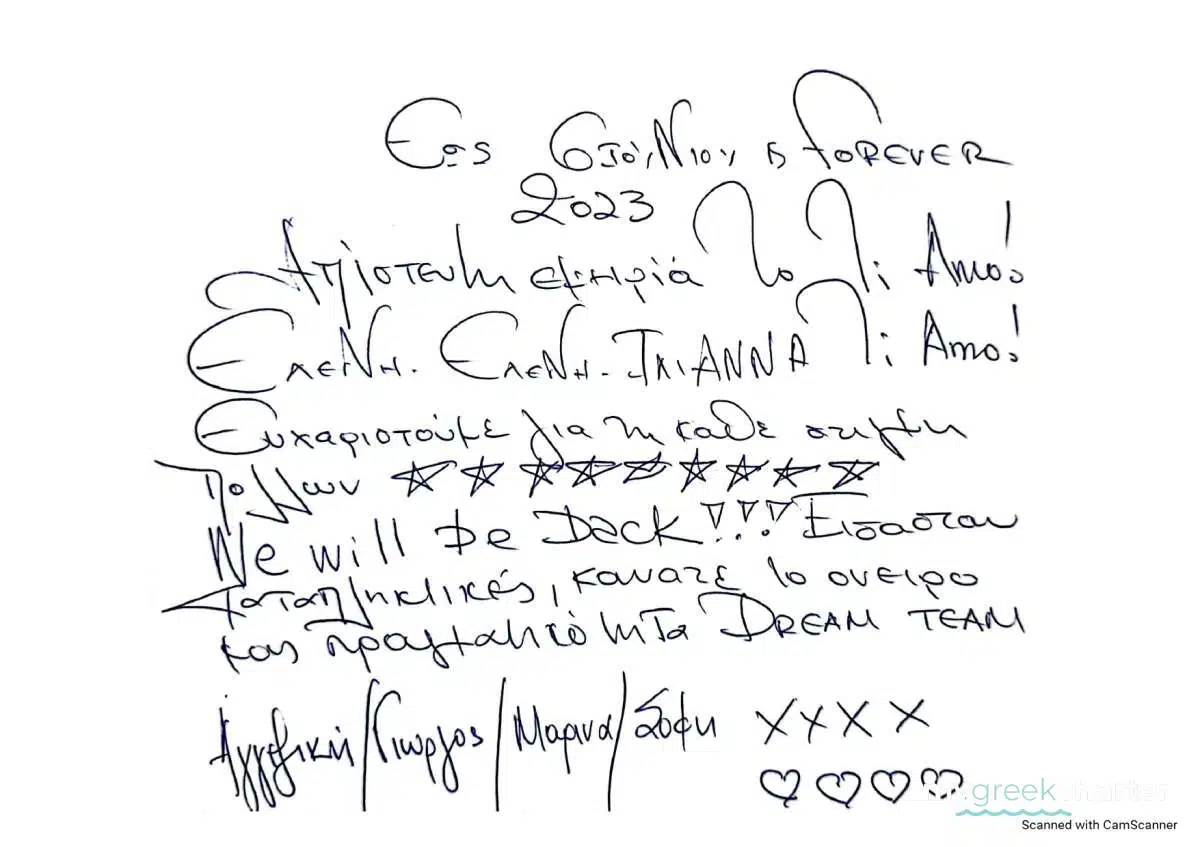 Εως 6 Ιουνιου & FOREVER
2023
Απίστευτη εμπειρία Το Τi Amo!
ΕλεΝη. ΕλεΝη. ΤΑΙΑΝΝΑ Τi Amo!
Ευχαριστούμε για τη καθε στιγμη
Πολλων
We will be Back!!! Εισασταν
καταπληκτικές, κανατε το ονειρο
μας πραγματικότητα DREAM TEAM
Αγγελική/Γιωργος/Μαρινα/Σοφη XXXX
greek charter
Scanned with CamScanner